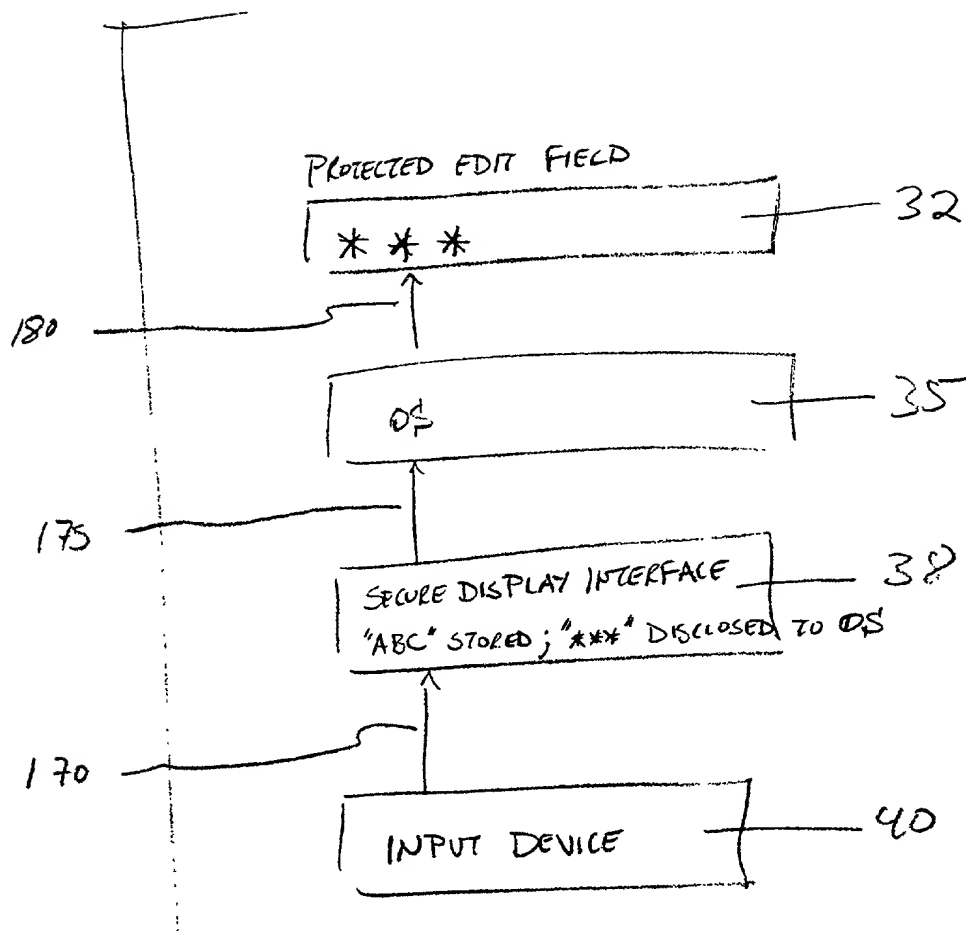 PROTECTED EDIT FIELD
32
* * *
180
35
OS
175
38
SECURE DISPLAY INTERFACE
"ABC" STORED; "***" DISCLOSED TO OS
170
40
INPUT DEVICE